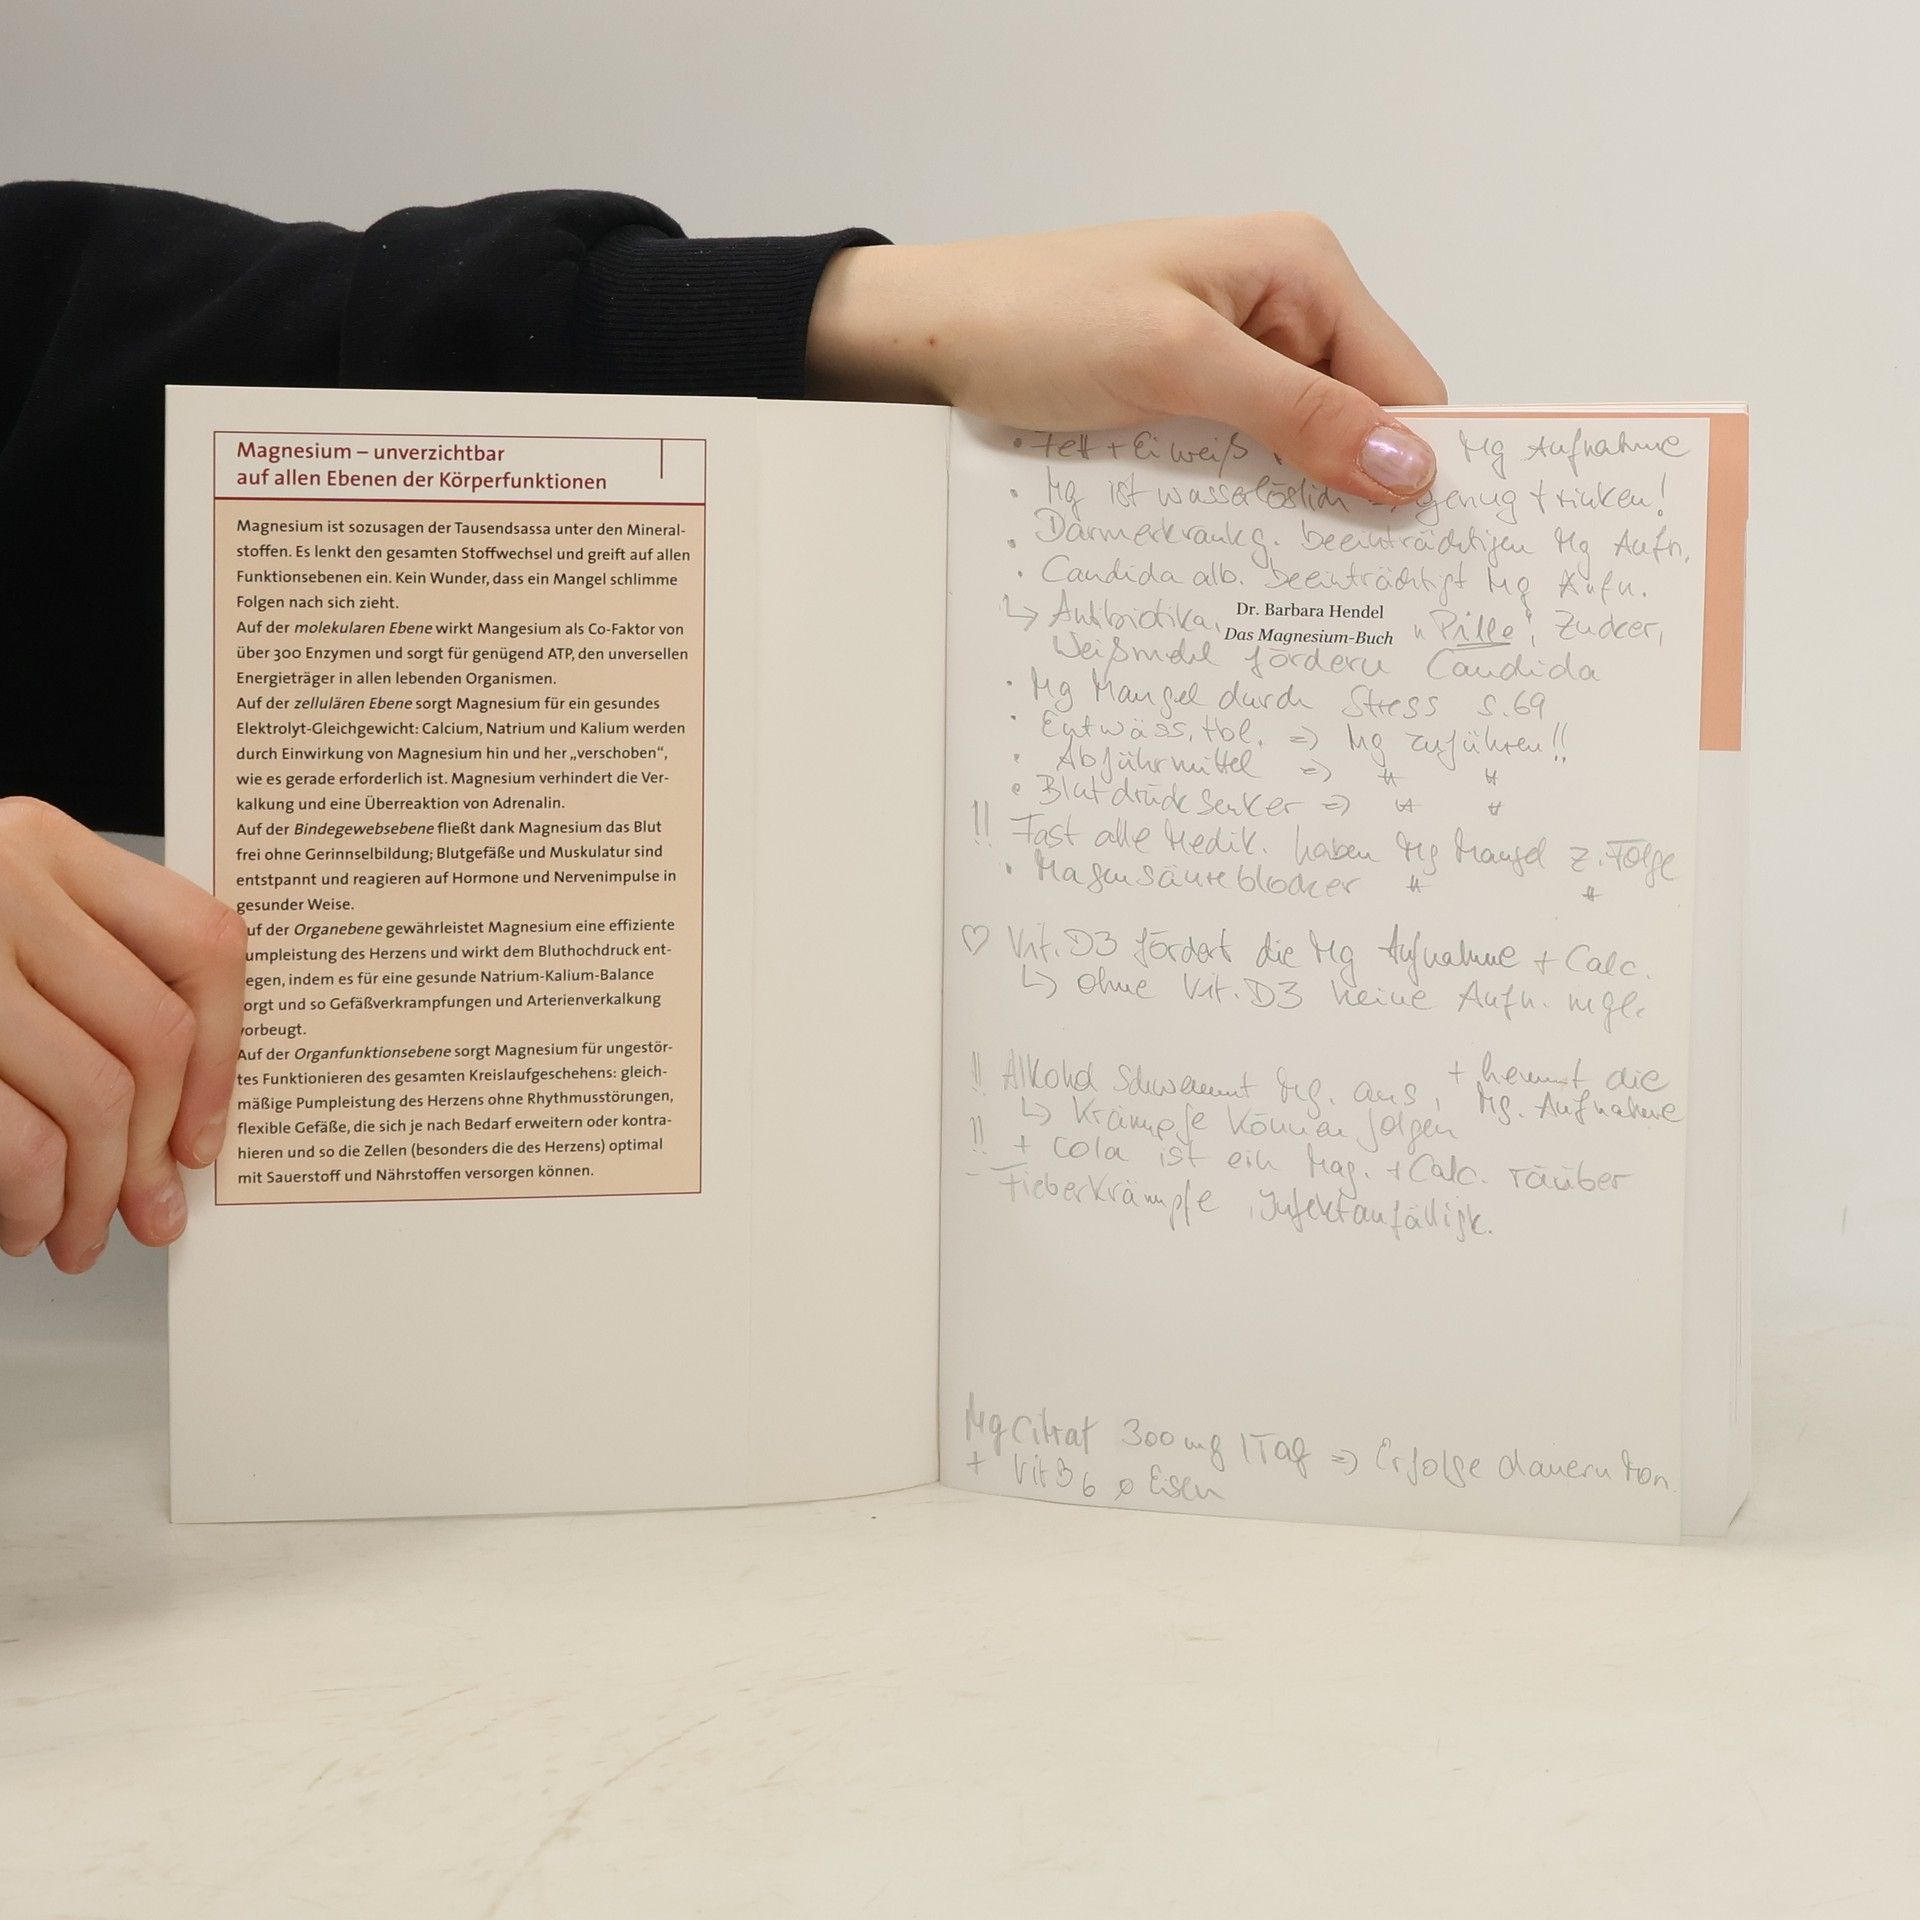 Magnesium – unverzichtbar
auf allen Ebenen der Körperfunktionen
Magnesium ist sozusagen der Tausendsassa unter den Mineral-
stoffen. Es lenkt den gesamten Stoffwechsel und greift auf allen
Funktionsebenen ein. Kein Wunder, dass ein Mangel schlimme
Folgen nach sich zieht.
Auf der molekularen Ebene wirkt Mangesium als Co-Faktor von
über 300 Enzymen und sorgt für genügend ATP, den unversellen
Energieträger in allen lebenden Organismen.
Auf der zellulären Ebene sorgt Magnesium für ein gesundes
Elektrolyt-Gleichgewicht: Calcium, Natrium und Kalium werden
durch Einwirkung von Magnesium hin und her „verschoben“,
wie es gerade erforderlich ist. Magnesium verhindert die Ver-
kalkung und eine Überreaktion von Adrenalin.
Auf der Bindegewebsebene fließt dank Magnesium das Blut
frei ohne Gerinnselbildung; Blutgefäße und Muskulatur sind
entspannt und reagieren auf Hormone und Nervenimpulse in
gesunder Weise.
uf der Organebene gewährleistet Magnesium eine effiziente
umpleistung des Herzens und wirkt dem Bluthochdruck ent-
egen, indem es für eine gesunde Natrium-Kalium-Balance
orgt und so Gefäßverkrampfungen und Arterienverkalkung
vorbeugt.
Auf der Organfunktionsebene sorgt Magnesium für ungestör-
tes Funktionieren des gesamten Kreislaufgeschehens: gleich-
mäßige Pumpleistung des Herzens ohne Rhythmusstörungen,
flexible Gefäße, die sich je nach Bedarf erweitern oder kontra-
hieren und so die Zellen (besonders die des Herzens) optimal
mit Sauerstoff und Nährstoffen versorgen können.
• Fett + Eiweiß Mg Aufnahme
• Mg ist wasserlöslich => genug trinken!
• Darmerkrankg. beeinträchtigen Mg Aufn.
• Candida alb. beeinträchtigt Mg Aufn.
↳ Antibiotika, "Pille", Zucker,
Dr. Barbara Hendel
Das Magnesium-Buch
Weißmehl fördern Candida
• Mg Mangel durch Stress S. 69
• Entwäss. tbl. => Mg zuführen!!
• Abführmittel => " "
• Blutdrucksenker => " "
!! Fast alle Medik. haben Mg Mangel z. Folge
• Magensäureblocker " "
♡ Vit. D3 fördert die Mg Aufnahme + Calc.
↳ ohne Vit. D3 keine Aufn. mgl.
!! Alkohol schwemmt Mg. aus, + hemmt die Mg. Aufnahme
↳ Krämpfe können folgen
!! + Cola ist ein Mag. + Calc. räuber
- Fieberkrämpfe, Infektanfällig.
Mg Citrat 300 mg / Tag => Erfolge dauern Mon.
+ Vit B6 ø Eisen